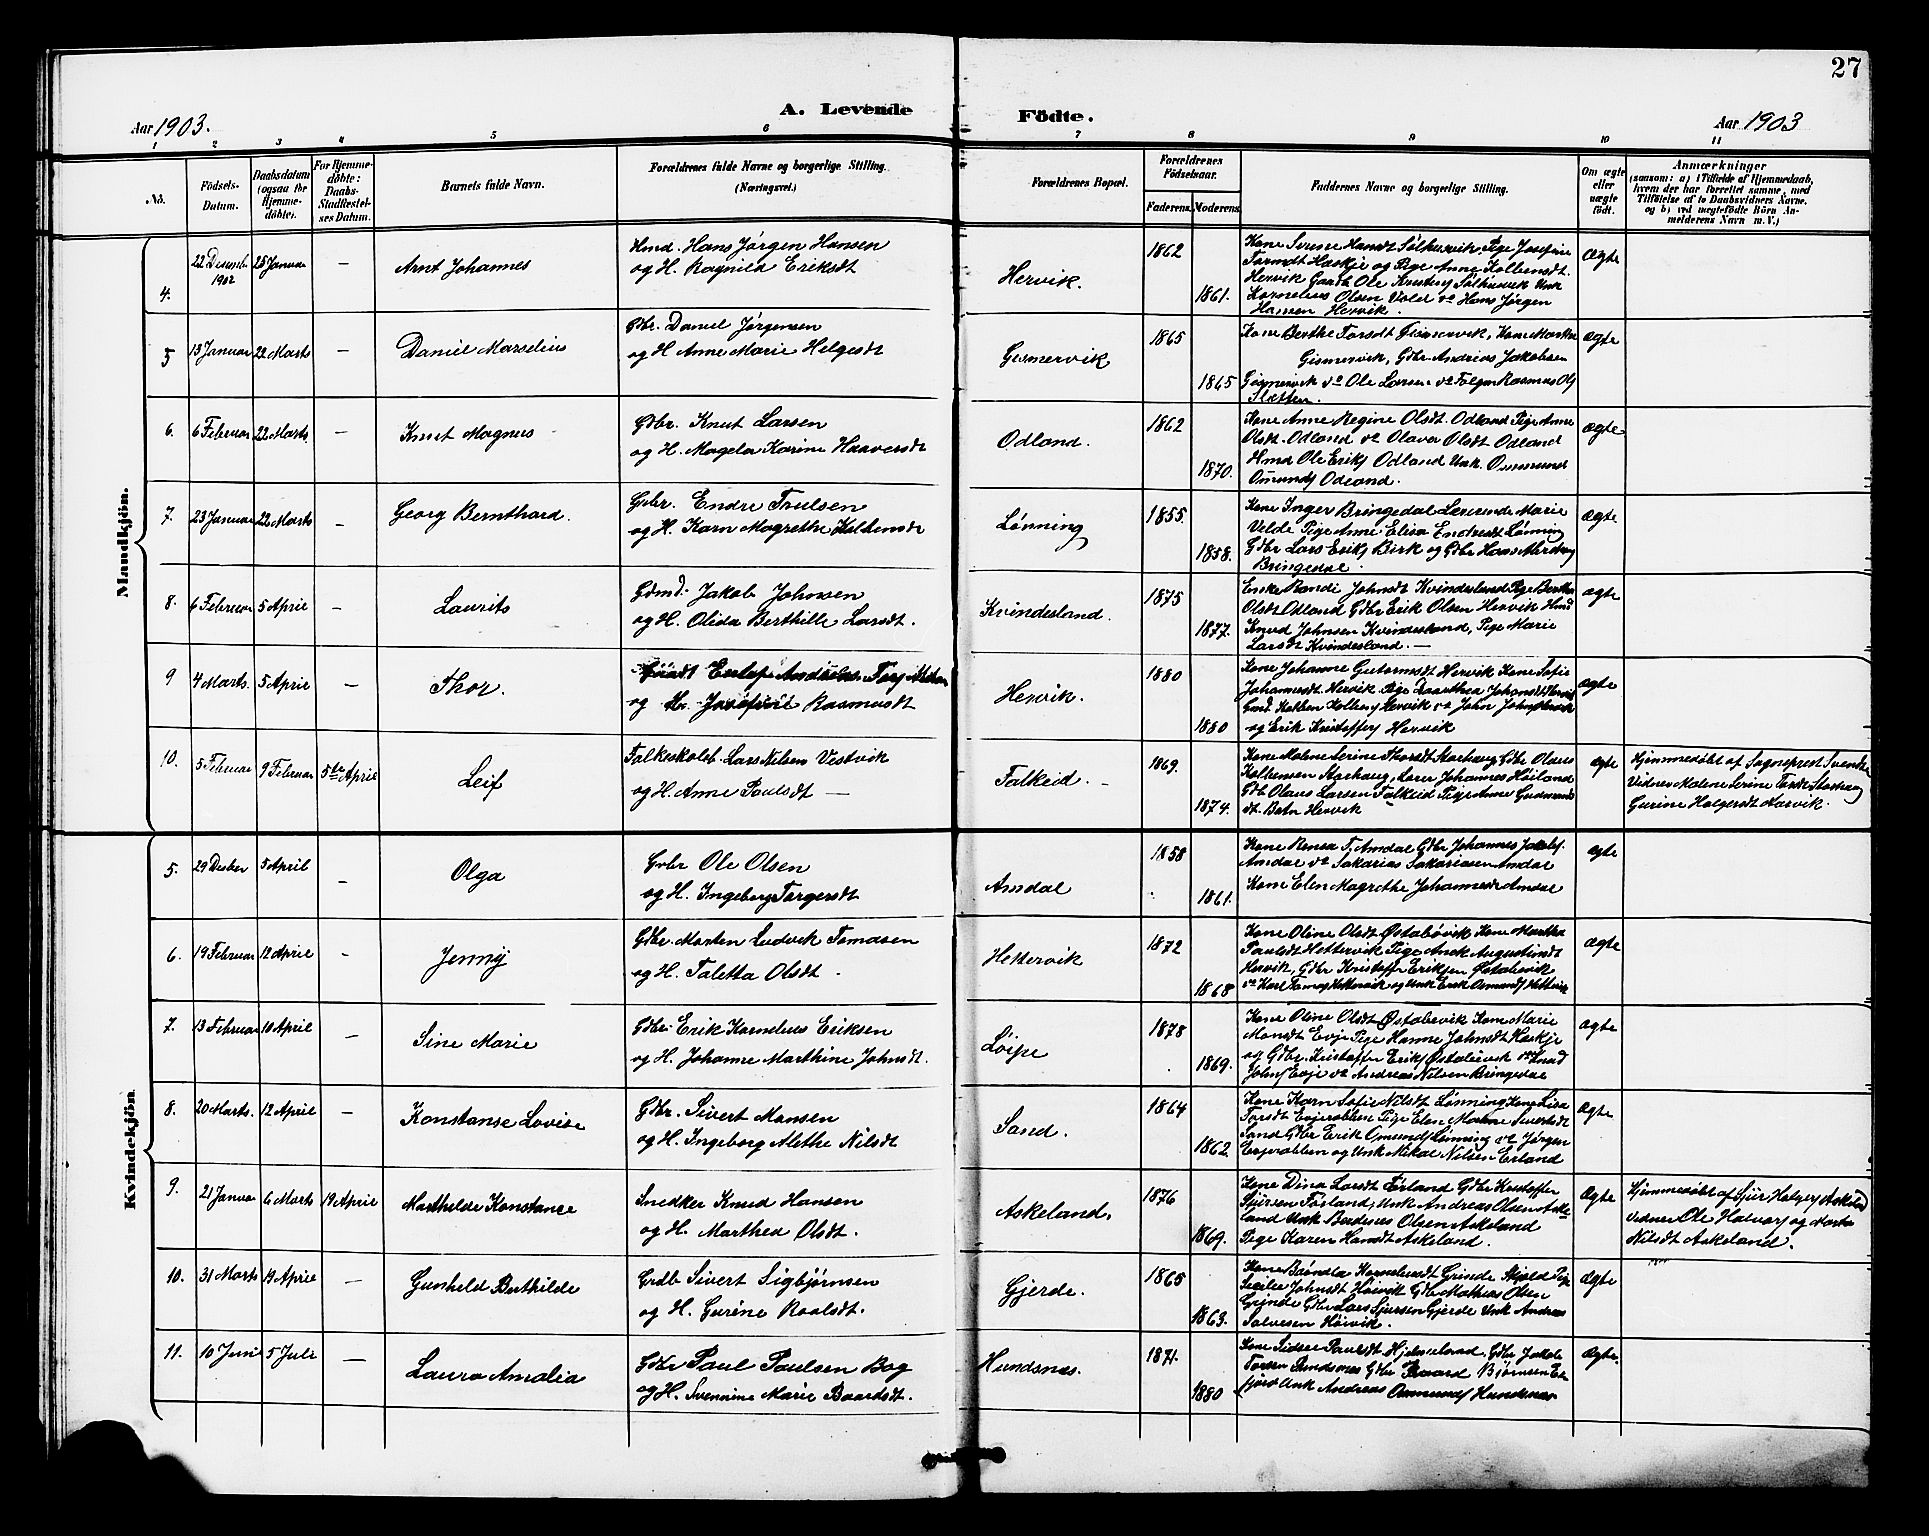 27
A. Levende Födte.
Aar 1903.
Aar 1903
1 2 3 4 5 6 7 8 9 10 11
No.
Födsels-
Datum.
Daabsdatum
(ogsaa for
Hjemme-
döbte).
For Hjemme-
döbte:
Daabs-
Stadfæstel-
ses Datum.
Barnets fulde Navn.
Forældrenes fulde Navne og borgerlige Stilling.
(Næringsvei.)
Forældrenes Bopæl.
Forældrenes
Födselsaar.
Faderens. Moderens.
Faddernes Navne og borgerlige Stilling.
Om ægte
eller
uægte
født.
Anmærkninger
(saasom: a) i Tilfælde af Hjemmedaab,
hvem der har forrettet samme, med
Tilføielse af to Daabsvidners Navne,
og b) ved uægtefödte Börn An-
melderens Navn m. V.)
Mandkjön.
4.
22 Desemb.
1902
25 Januar
—
Arnt Johannes
Hmd. Hans Jørgen Hansen
og H. Ragnild Eriksdt
Hervik.
1862
1861.
Hervik Gaardb Ole
Kornelius Olsen Voler do Hans Jørgen
Hansen Hervik.
Ægte
5
13 Januar
22 Marts
—
Daniel Marselius
Gbr. Daniel Jørgensen
og H Anne Marie Helgesdt
Gismervik
1865
1865
Gismervik, Gdbr Andreas Jakobsen
Gismervik do Ole Larsen do Folgm Rasmus Ols
Sletten.
ægte
6.
6 Februar
22 Marts
—
Knut Magnus
Gdbr. Knut Larsen
og H. Magela Karine Haaversdt
Odland.
1862
1870.
Kone Anne Regine Olsdt Odland Pige Anne
Olsdt. Odland do Olava Olsdt Odland
Hmd Ole Eriks Odland Unk. Ommund
Omunds Odland.
ægte
7.
23 Januar
22 Marts
—
Georg Bernthard.
Gdbr. Endre Trulsen
og H. Karn Magrethe Kolbensdt
Lønning
1855.
1858.
Kone Inger Bringedal Lærerinde Marie
Velde Pige Anne Elisa Endresdt Lønning
Gdbr Lars Eriks Birk og Gdbr Hans
Bringedal.
ægte
8.
6 Februar
5 Aprie
—
Laurits
Gdmd. Jakob Johnsen
og H. Olida Berthille Larsdt.
Kvindesland.
1875
1877.
Enke Randi Johnsdt Kvindesland Pige Bertha
Olsdt Odland Gdbr Erik Olsen Hervik Hmd
Knud Johnsen Kvindesland, Pige Marie
Larsdt Kvindesland. —
ægte
9
4 Marts.
5 Aprie
—
Thor.
og H. Josefine Rasmusdt
Hervik.
1880
1880
Kone Johanne Gutormsdt Hervik Kone Sofie
Johannesdt Hervik Pige Daarthea Johansdt Hervik
Gmd Kolben Kolbens Hervik do John Johns Hervik
og Erik Kristoffers Hervik
ægte
10.
5 Februar
9 Februar
5te Aprie
Leif
Folkeskoleb. Lars Nilsen Vestvik
og H. Anne Paulsdt —
Falkeid. —
1869.
1874.
Kone Malene Serine Thorsdt Storhaug Gdbr Olaus
Kolbensen Storhaug, Lærer Johannes Høiland
Gdb Olaus Larsen Falkeid Pige Anne Gudmunds
dt. Hervik
ægte
Hjemmedøbt af Sogneprest Svendsen
Vidner Malene Serine Torsdt Storhaug
Gurine Helgesdt Hervik.
Kvindekjön
5.
29 Desber
5 Aprie
—
Olga
Gdbr Ole Olsen
og H. Ingeborg Torgersdt
Amdal
1858
1861.
Kone Rensa T. Amdal Gdbr Johannes Jakobs.
Amdal do Sakarias Sakariasen Amdal
Kone Elen Magrethe Johannesdt Amdal
ægte
6.
19 Februar
12 Aprie
—
Jenny
Gdbr. Morten Ludvik Tomasen
og H. Taletta Olsdt.
Hettervik
1872
1868
Kone Oline Olsdt Østabøvik Kone Martha
Paulsdt Hettervik Pige Ansk Augustinsdt
Hervik, Gdbr Kristoffer Eriksen Østabøvik
do Karl Tomas Hettervik og Unk Erik Osmunds Hettervik
ægte
7.
13 Februar
10 Aprie
—
Sine Marie
Gdbr. Erik Kornelius Eriksen
og H. Johanne Marthine Johnsdt.
Løipe
1878
1869.
Kone Oline Olsdt Østabøvik Kone Marie
Monsdt Evje Pige Hanne Johnsdt Haskje
og Gdbr. Kristoffer Eriks Østabøvik do Knud
Johns Evje do Andreas Nilsen Bringedal
ægte
8.
20 Marts.
12 Aprie
—
Konstanse Lovise
Gdbr. Sivert Monsen
og H. Ingeborg Alethe Nilsdt
Sand.
1864
1862.
Kone Karn Sofie Nilsdt Lønning Kone Lisa
Torsdt Evjerabben Pige Elen Malene Siversdt
Sand Gdbr Erik Omunds Lønning do Jørgen
Evjerabben og Unk Mikal Nilsen Erland
Ægte
9.
21 Januar
6 Marts
19 Aprie
Marthilde Konstance
Snedker Knud Hansen
og H. Marthea Olsdt.
Askeland.
1876
1869.
Kone Dina Larsdt Erland Gdbr Kristoffer
Sjursen Førland, Unk Andreas Olsen Aske-
land Unk Berdines Olsen Askeland
Pige Karen Hansdt Askeland.
Ægte
Hjemmedøbt af Sjur Helges Askeland
Vidner Ole Halvors og Marta
Nilsdt Askeland.
10.
31 Marts
19 Aprie
—
Gunhild Berthilde
Grdb Sivert Sigbjørnsen
og H. Gurine Roalsdt.
Gjerde.
1865
1863.
Kone Korneliusdt Grinde Skjold Pige
Sesilie Johnsdt Høievik Gdbr Mathias Olsen
Grinde Gdbr Lars Sjursen Gjerde Unk Andreas
Salvesen Høivik.
Ægte
11.
10 Juni
5 Juli
—
Laura Amalia
Gdbr Paul Paulsen Bog
og H. Svennine Marie Baardsdt.
Hundsnes.
1871.
1880
Kone Sidsel Paulsdt Gdbr Jakob
Torsen Hundsnes Gdbr Baard Bjørnsen
Unk Andreas Osmunds Hundsnes
Ægte.